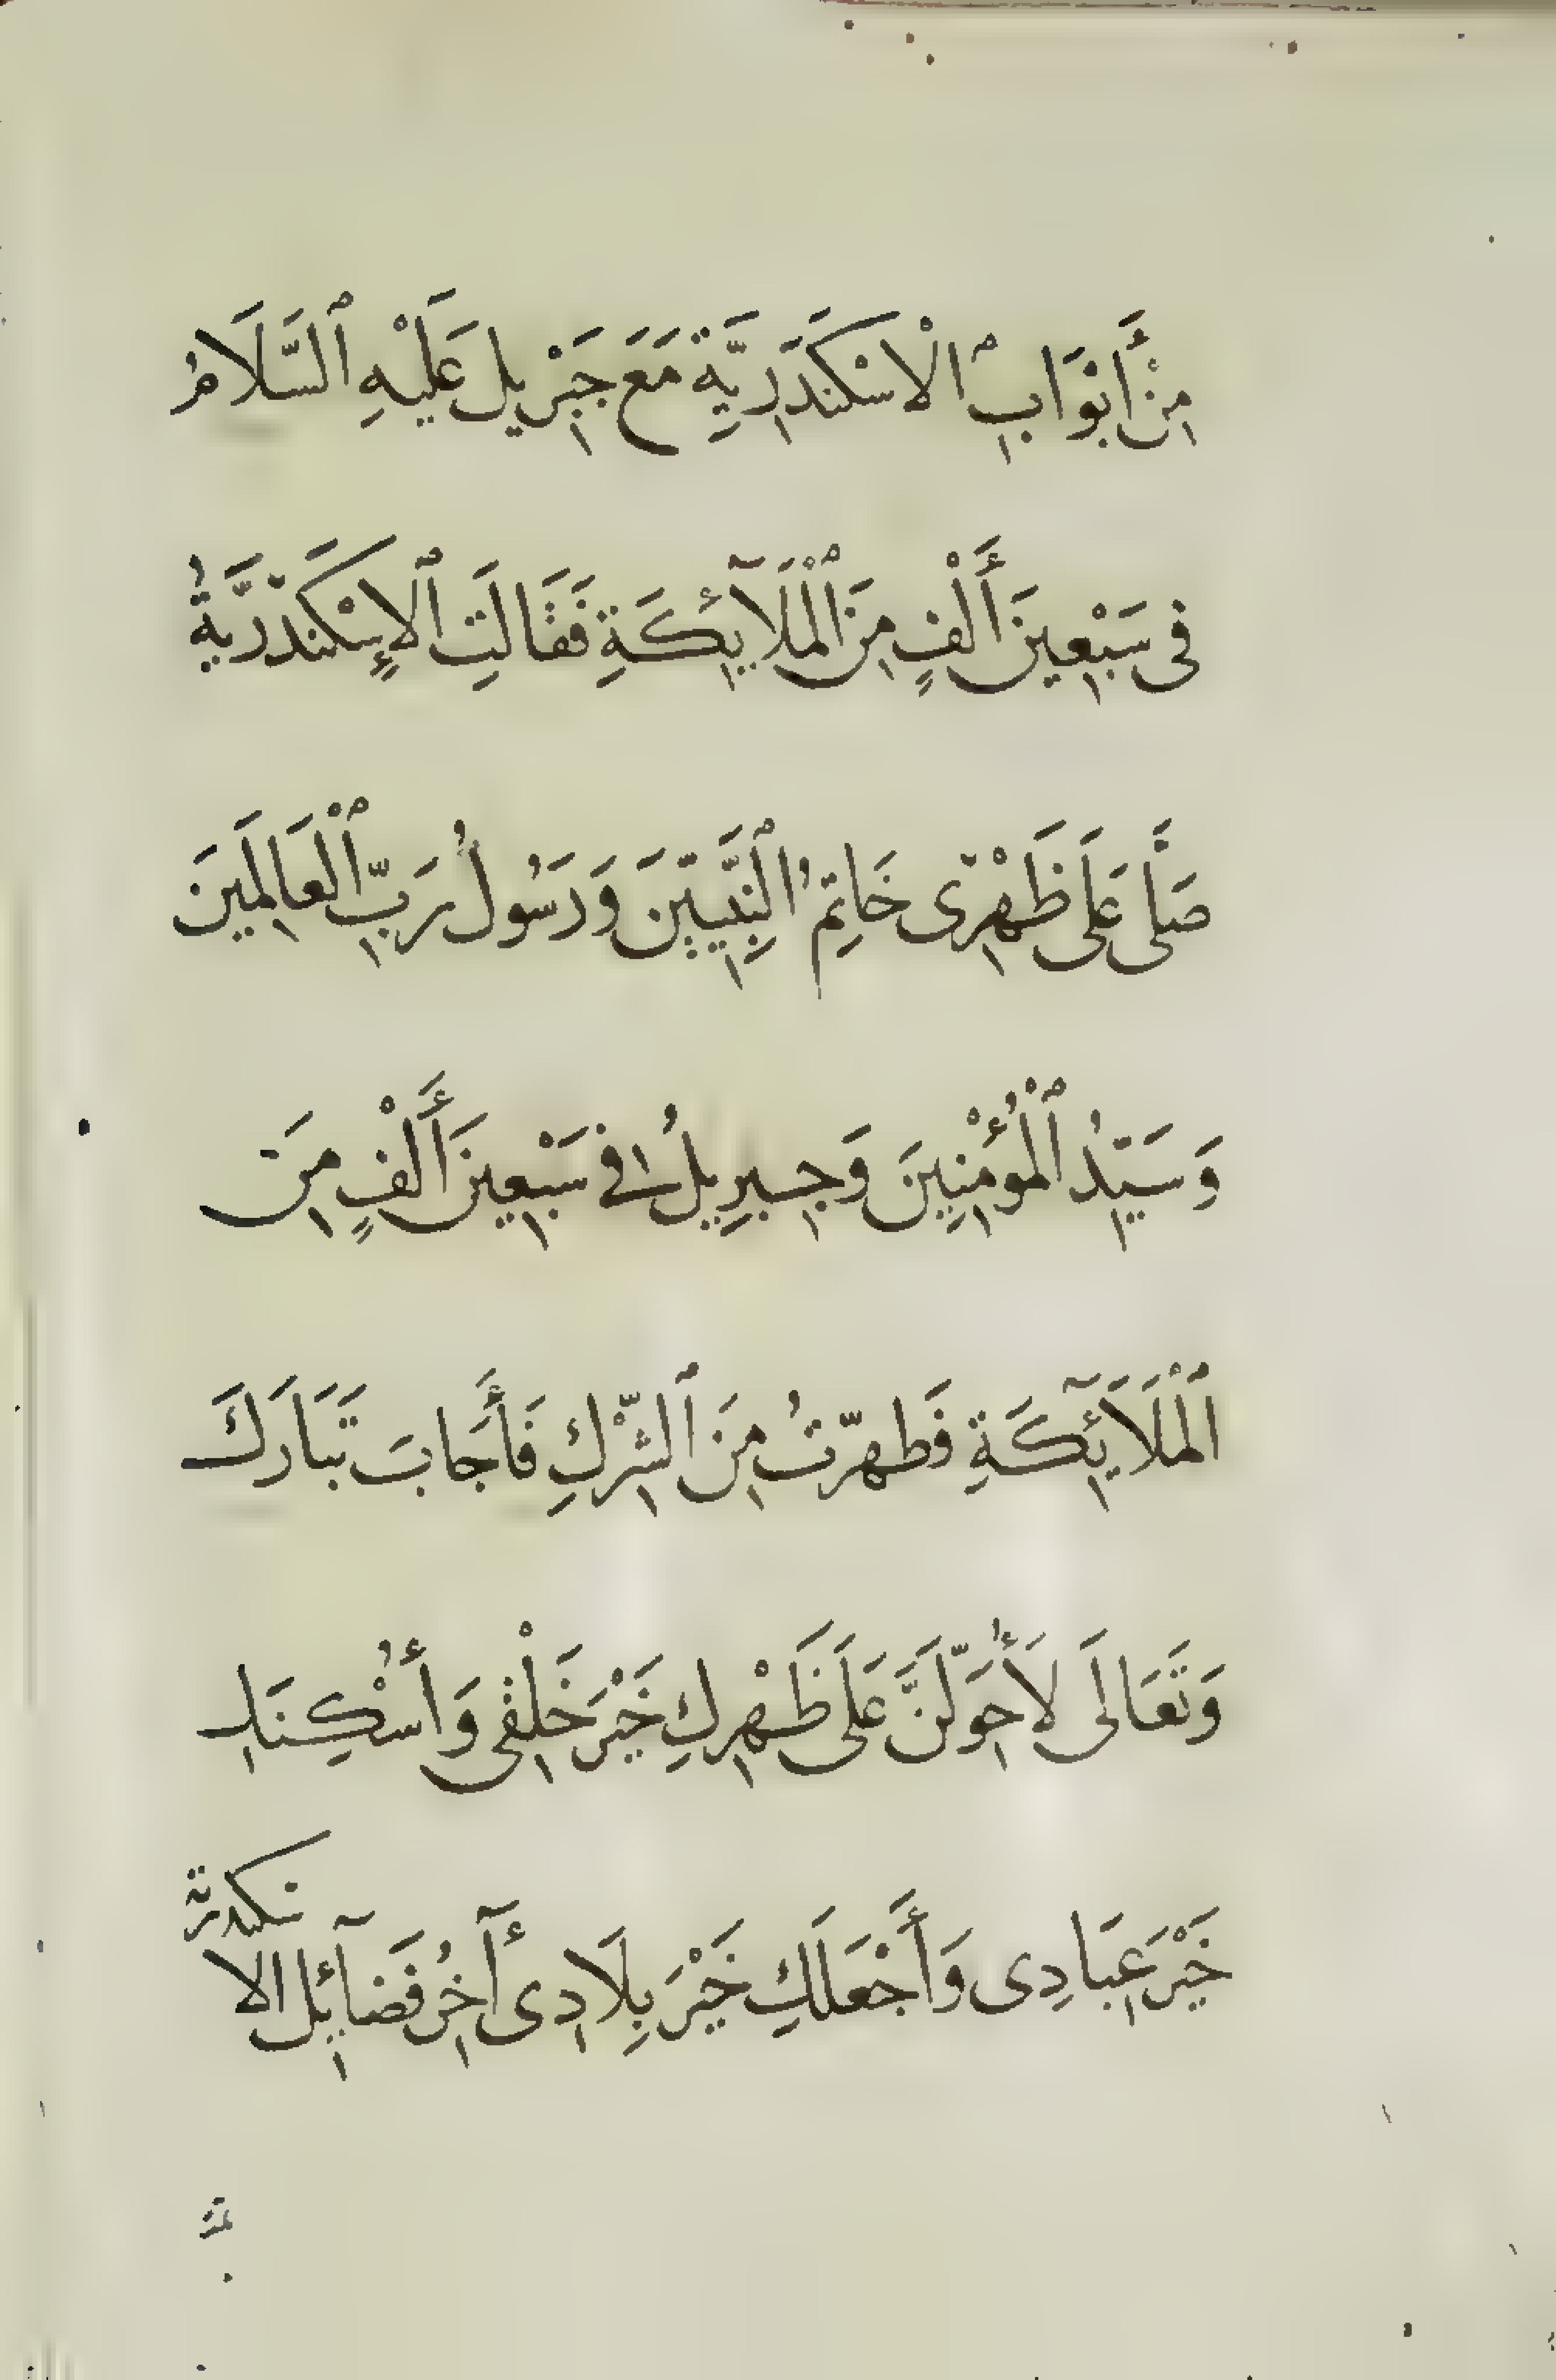 مِنْ أَبْوَابِ ٱلْاسْكَنْدَرِيَّةِ مَعَ جَبْرِيلَ عَلَيْهِ ٱلسَّلَامُ
فِى سَبْعِينَ أَلْفٍ مِنَ ٱلْمَلَآئِكَةِ فَقَالَتِ ٱلإِسْكَنْدَرِيَّةُ
صَلَّى عَلَى ظَهْرِى خَاتِمُ ٱلنَّبِيِّينَ وَرَسُولُ رَبِّ ٱلْعَالَمِينَ
وَسَيِّدُ ٱلْمُؤْمِنِينَ وَجِبرِيلُ فِى سَبْعِينَ أَلْفٍ مِنَ
ٱلْمَلَآئِكَةِ فَطهرّتُ مِنَ ٱلشِّرْكِ فَأَجَابَ تَبَارَكَ
وَتَعَالَى لَأُحَوِّلَنَّ عَلَى ظَهْرِكِ خَيْرَ خَلْقِى وَأُسْكِنَنكِ
خَيْرَ عِبَادِى وَأَجْعَلَكِ خَيْرَ بِلَادِى آخِرُ فَضَآئِلِ الاسكندرية